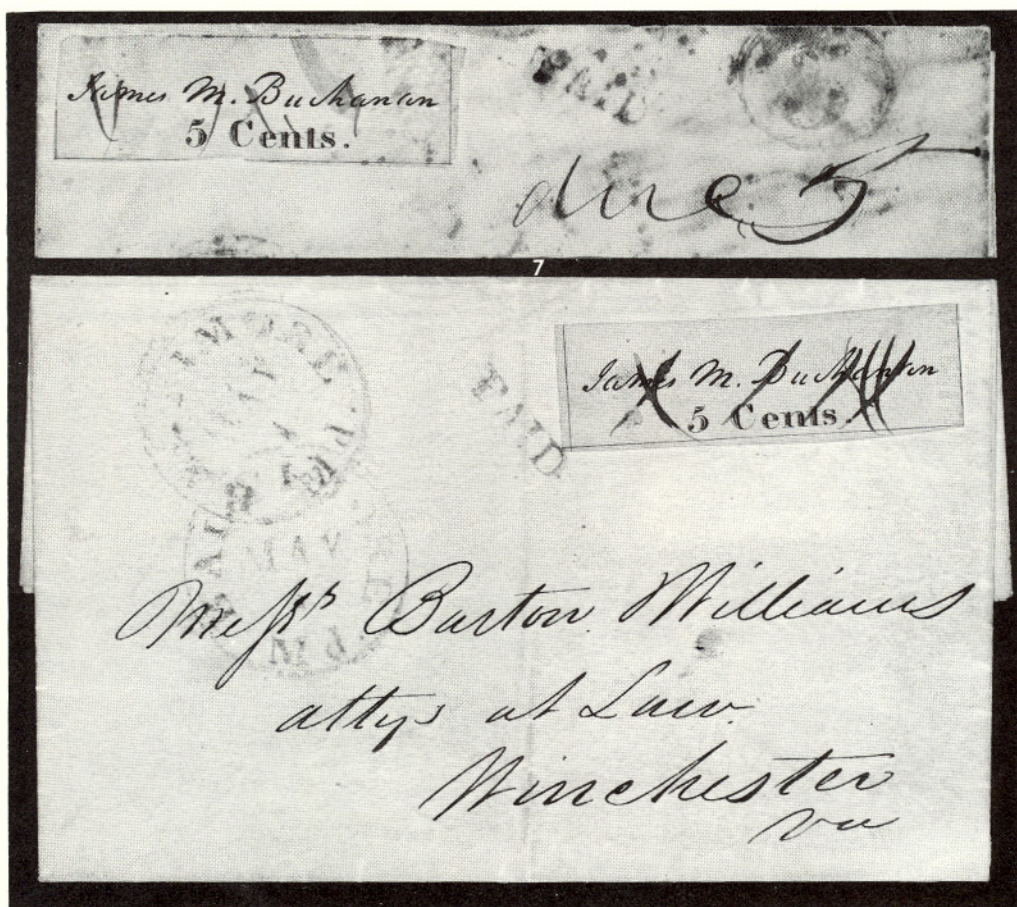 James M. Buchanan
5 Cents.
PAID
due 5
7
PAID
James M. Buchanan
5 Cents.
MAY
Md
Messrs Barton Williams
attys at Law.
Winchester
va